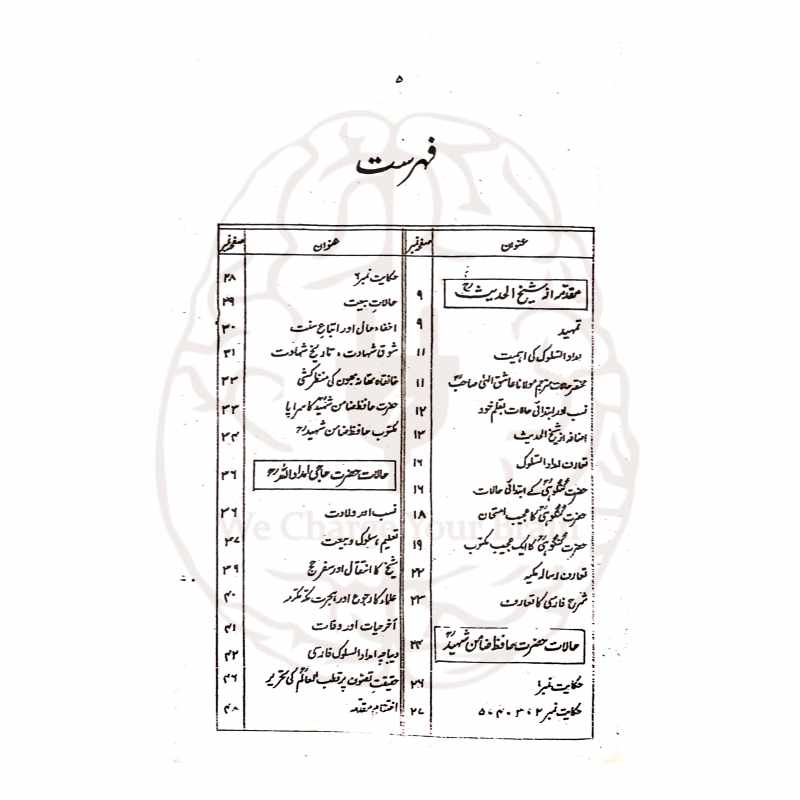 ۵
فہرست
عنوان صفحہ نمبر
مقدمہ از شیخ الحدیثؒ ۹
تمہید ۹
امداد السلوک کی اہمیت ۱۱
مختصر حالات مترجم مولانا عاشق الٰہی صاحبؒ ۱۱
نسب اور ابتدائی حالات بقلم خود ۱۲
اضافہ از شیخ الحدیث ۱۳
تعارف امداد السلوک ۱۶
حضرت گنگوہیؒ کے ابتدائی حالات ۱۶
حضرت گنگوہیؒ کا عجیب امتحان ۱۸
حضرت گنگوہیؒ کا ایک عجیب مکتوب ۱۹
تعارف رسالہ مکیہ ۲۲
شرح فارسی کا تعارف ۲۳
حالات حضرت حافظ ضامن شہیدؒ ۲۴
حکایت نمبر۱ ۲۶
حکایت نمبر ۲، ۳، ۴، ۵ ۲۷
عنوان صفحہ نمبر
حکایت نمبر ۶ ۲۸
حالاتِ بیعت ۲۹
اخفاء حال اور اتباعِ سنت ۳۰
شوقِ شہادت، تاریخ شہادت ۳۱
خانقاہ تھانہ بھون کی منظر کشی ۳۳
حضرت حافظ ضامن شہیدؒ کا سراپا ۳۳
مکتوب حافظ ضامن شہیدؒ ۳۴
حالات حضرت حاجی امداد اللہؒ ۳۶
نسب اور ولادت ۳۶
تعلیم، سلوک و بیعت ۳۷
شیخ کا انتقال اور سفر حج ۳۹
علماء کا رجوع اور ہجرت مکہ مکرمہ ۴۰
آخر حیات اور وفات ۴۱
دیباچہ امداد السلوک فارسی ۴۲
حقیقتِ تصوف پر قطب العالمؒ کی تحریر ۴۶
اختتام مقدمہ ۴۸
We Charge Your Brain